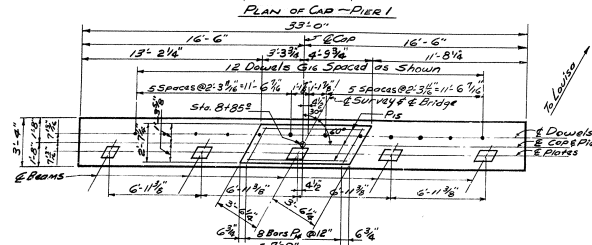 PLAN OF CAP ~ PIER 1
33'-0"
℄ Cap
16'-6" 16'-6"
13'-2 1/4" 3'-3 3/4" 4'-9 3/4" 11'-8 1/4"
12 Dowels G16 Spaced as Shown
5 Spaces @ 2'-3 11/16" = 11'-6 7/16" 5 Spaces @ 2'-3 11/16" = 11'-6 7/16"
℄ Survey & ℄ Bridge
Sta. 8+85.0
P15
60°
To Louisa
3'-4"
1'-8" 1'-8"
℄ Dowels
℄ Cap & Pier
℄ Plates
℄ Beams
6'-11 3/8" 6'-11 3/8" 6'-11 3/8" 6'-11 3/8"
4 1/2
3'-6 1/4" 3'-6 1/4"
6 3/4" 8 Bars P14 @ 12" 6 3/4"